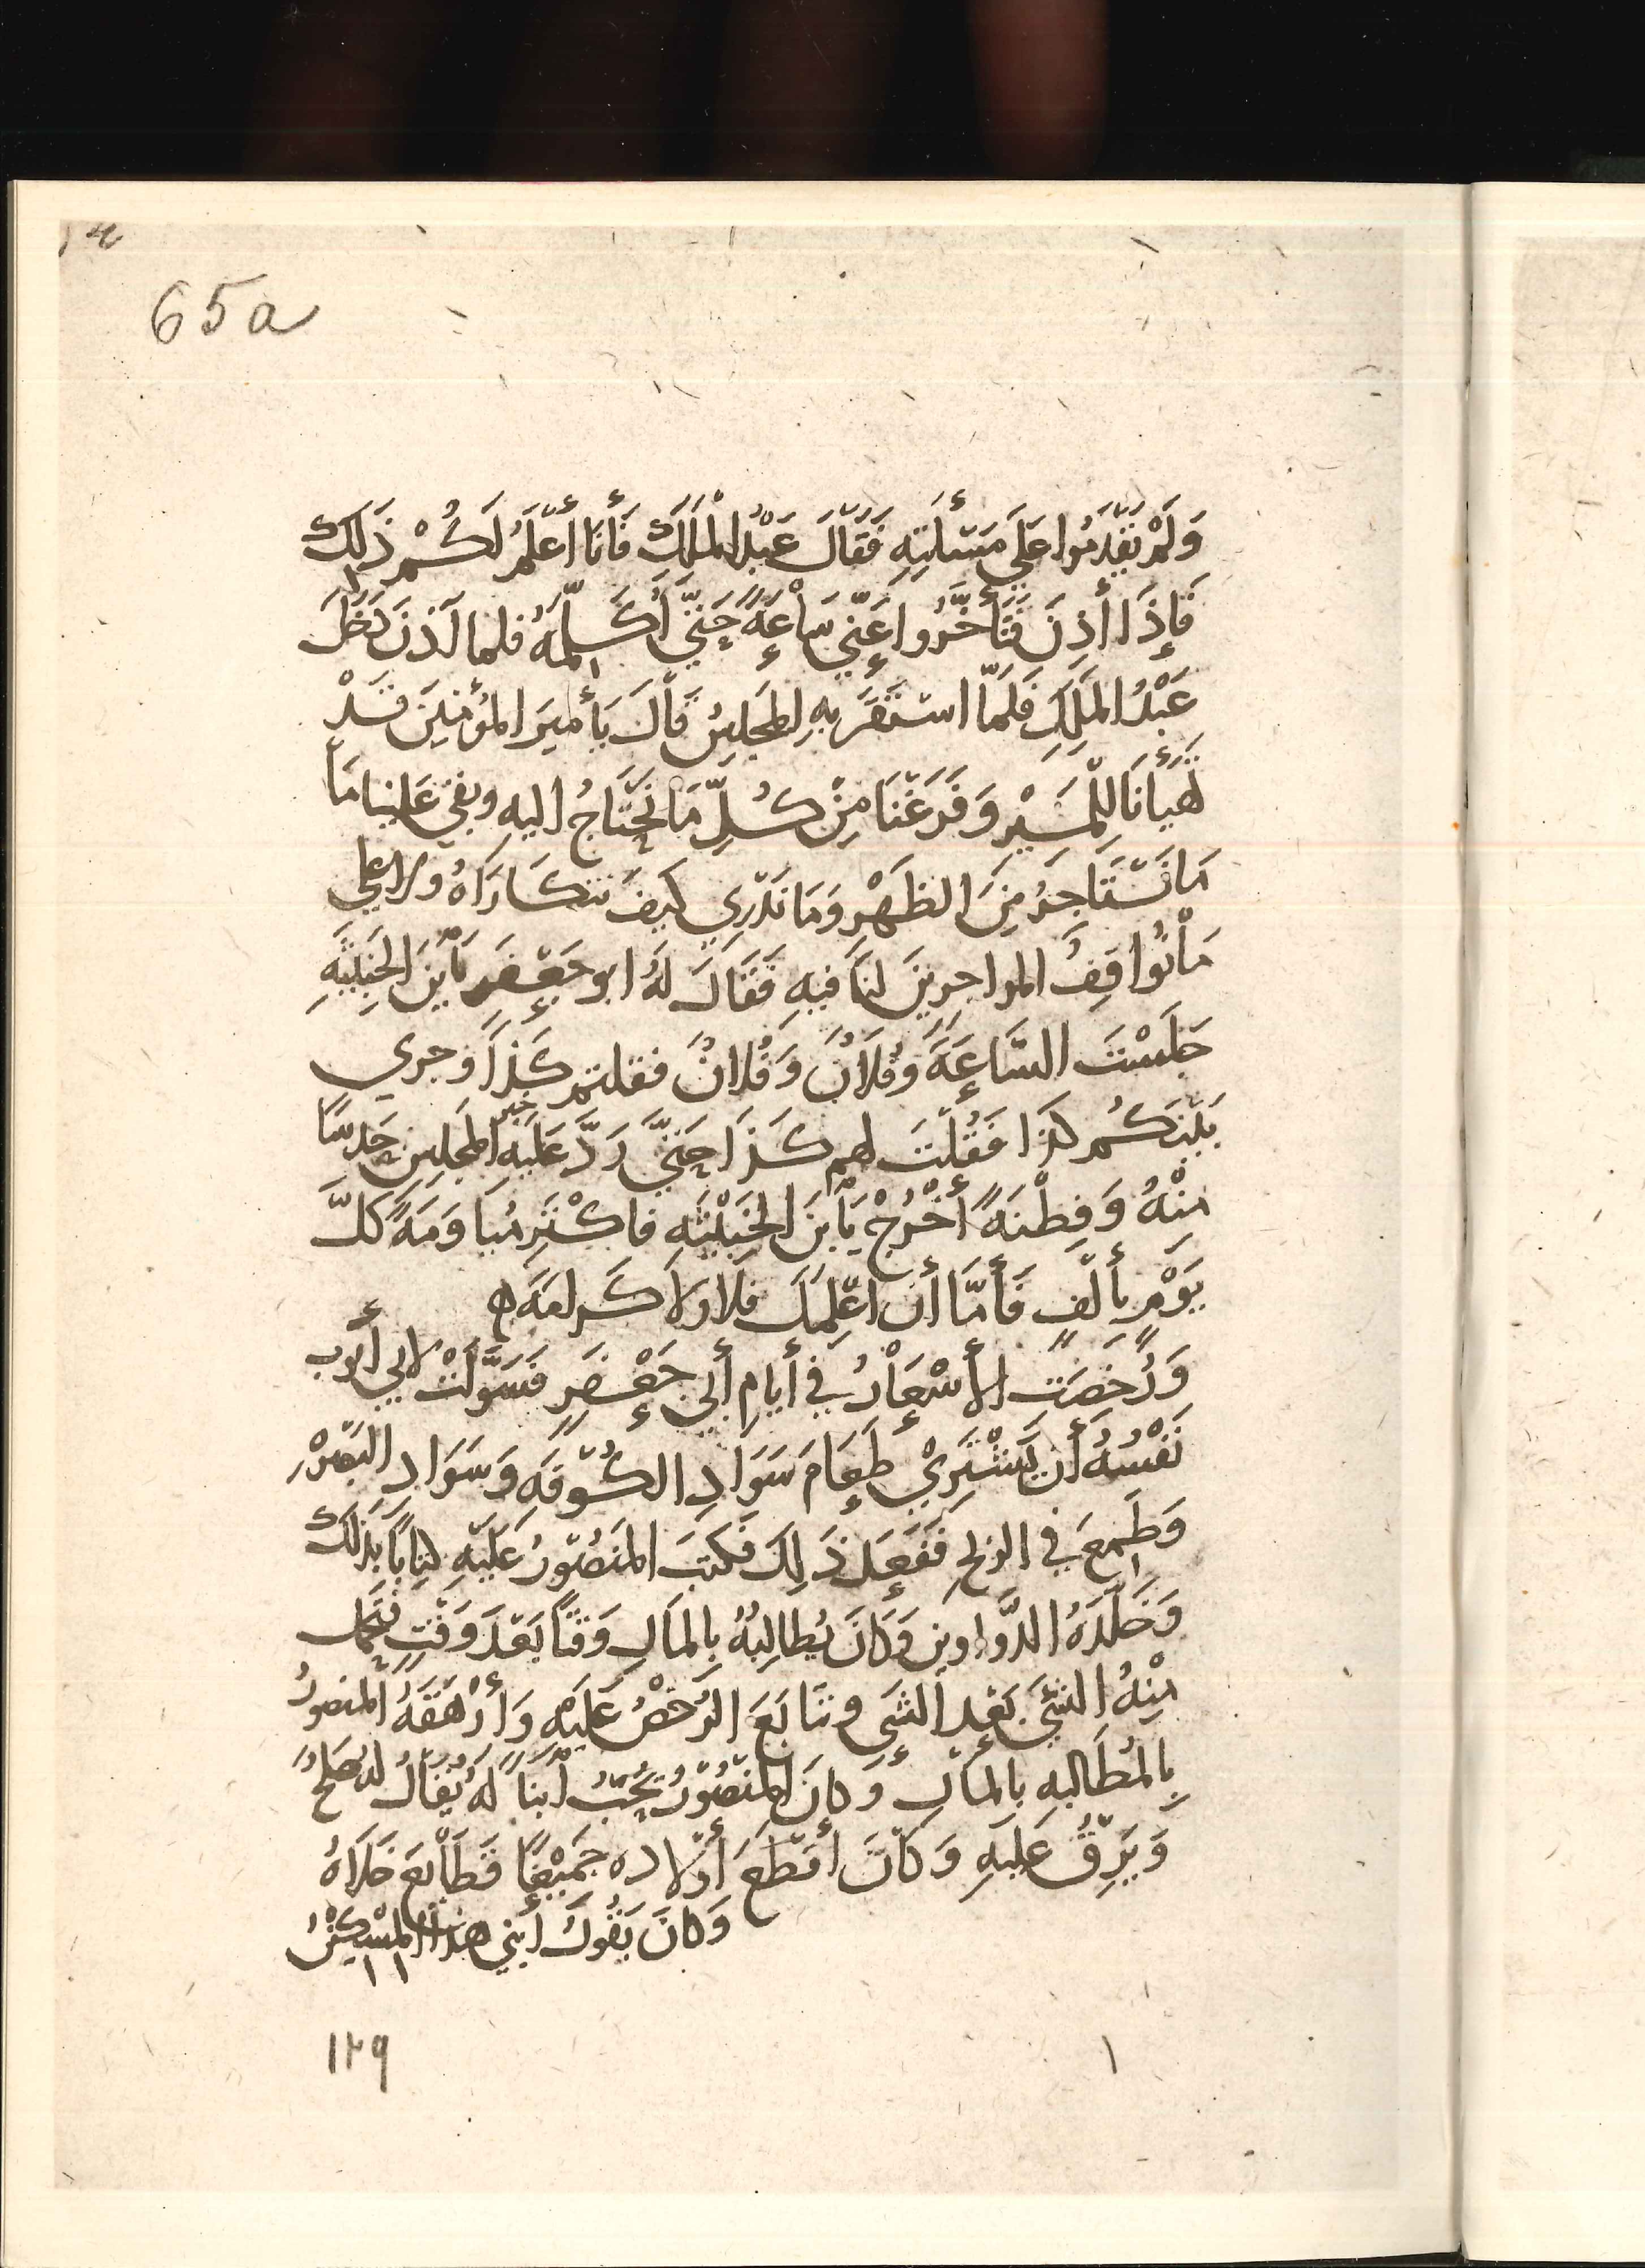 65a
وَلَمْ يَقْدَمُوا عَلَي مَسْأَلَتِهِ فَقَالَ عَبْدُ الْمَلِك فَأَنَا أَعْلَمُ لَكُمْ ذَلِكَ
فَإِذَا أَذِنَ فَتَأَخَّرُوا عَنِّي سَاعَةً حَتَّي أُكَلِّمَهُ فلما أذنَ دَخَلَ
عَبْدُ المَلِكِ فَلَمَّا استَقَرَ بِهِ المَجلِسُ قَالَ يَا أميرَ المؤمنينَ قَدْ
تَهَيأنَا لِلْمَسِيْرِ وَفَرَغْنَا مِنْ كُلِّ مَا نَحْتَاجُ اليهِ وبقي عَلينا مَا
مَا نَسْتَاجِرُ مِنَ الظَهْرِ وَمَا نَدْرِي كيفَ نتكَارَاهُ ولا علي
مَا نُوَاقِفُ المواجرينَ لنَا فيهِ فَقَالَ لَهُ ابو جَعْفَر يَا بنَ الخَبِيثَةِ
جَلَسْتَ السَّاعَةَ وَفُلَانُ وَفُلَانٌ فقلتم كَذَا وَجري
بَيْنَكُم كذا فَقُلْتَ لهم كَذَا حَتَّي رَدَّ عَلَيهِ خبر المَجلِسِ حَدسًا
مِنْهُ وَفِطْنَةً أُخْرُجْ يَا بنَ الخَبِيْثَةِ فاكْتَرِ مُيَاوَمَةً كلَّ
يَوْمٍ بأَلْفٍ فَأَمَّا أَن اعْلِمَكَ فَلَا وَلَا كَرامَة ه
وَرَخُصَت الأَسْعَارُ في أيام أبي جَعْفَرٍ فَسَوَّلَتْ لابي أيوب
نَفْسُهُ أَن يَشْتَرِيْ طَعَامَ سَوَادِ الكُوْفَةِ وَسَوَادِ البَصْرَةِ
وَطَمِعَ في الربحِ فَفَعَلَ ذَلِكَ فكتبَ المَنصُوْرُ عَلَيهِ كِتَابًا بِذلك
وَخَلَّدَهُ الدَّواوينِ وَكَانَ يُطالِبهُ بِالمَالِ وَقتًا بَعْدَ وَقْتٍ فيحمل
مِنْهُ الشَّيْءَ بَعْدَ الشي وتتابَعَ الرُخصُ عَلَيهِ وَأَرْهَقَهُ المنصورُ
بِالمُطَالبهِ بِالمالِ وَكَانَ المنصُوْرُ يُحِبُّ أبْنًا لَهُ يُقَالُ لهُ صَالحٌ
وَيَرِقُّ عَليهِ وَكانَ أقطَعَ أوْلاده جَمِيْعًا قَطَائِعَ خَلَاهُ
وَكَانَ يَقُولُ أبني هذا المِسْكِيْنُ
١٢٩